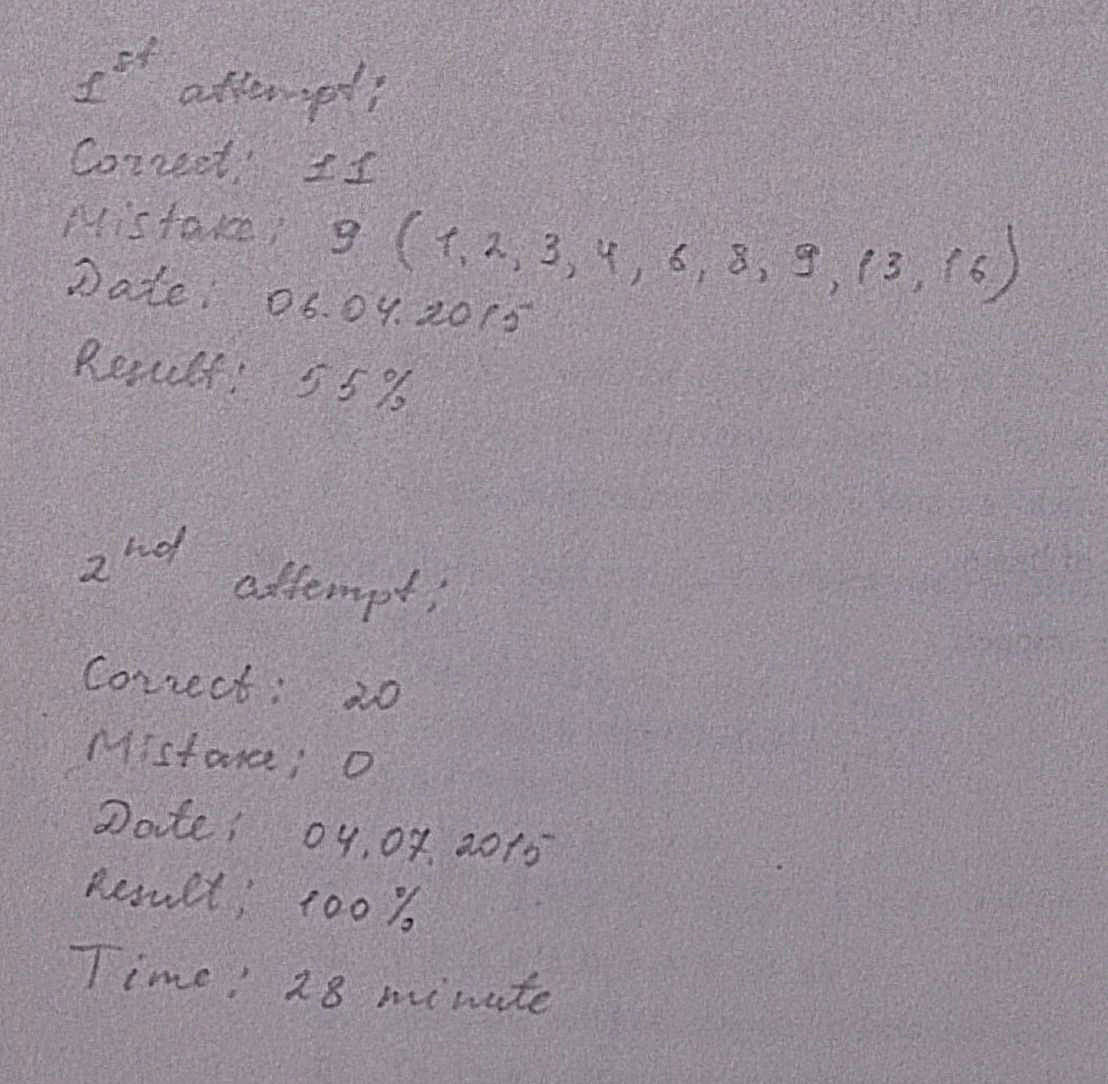 1st attempt:
Correct: 11
Mistake: 9 (1, 2, 3, 4, 6, 8, 9, 13, 16)
Date: 06.04.2015
Result: 55%
2nd attempt:
Correct: 20
Mistake: 0
Date: 04.07.2015
Result: 100%
Time: 28 minute